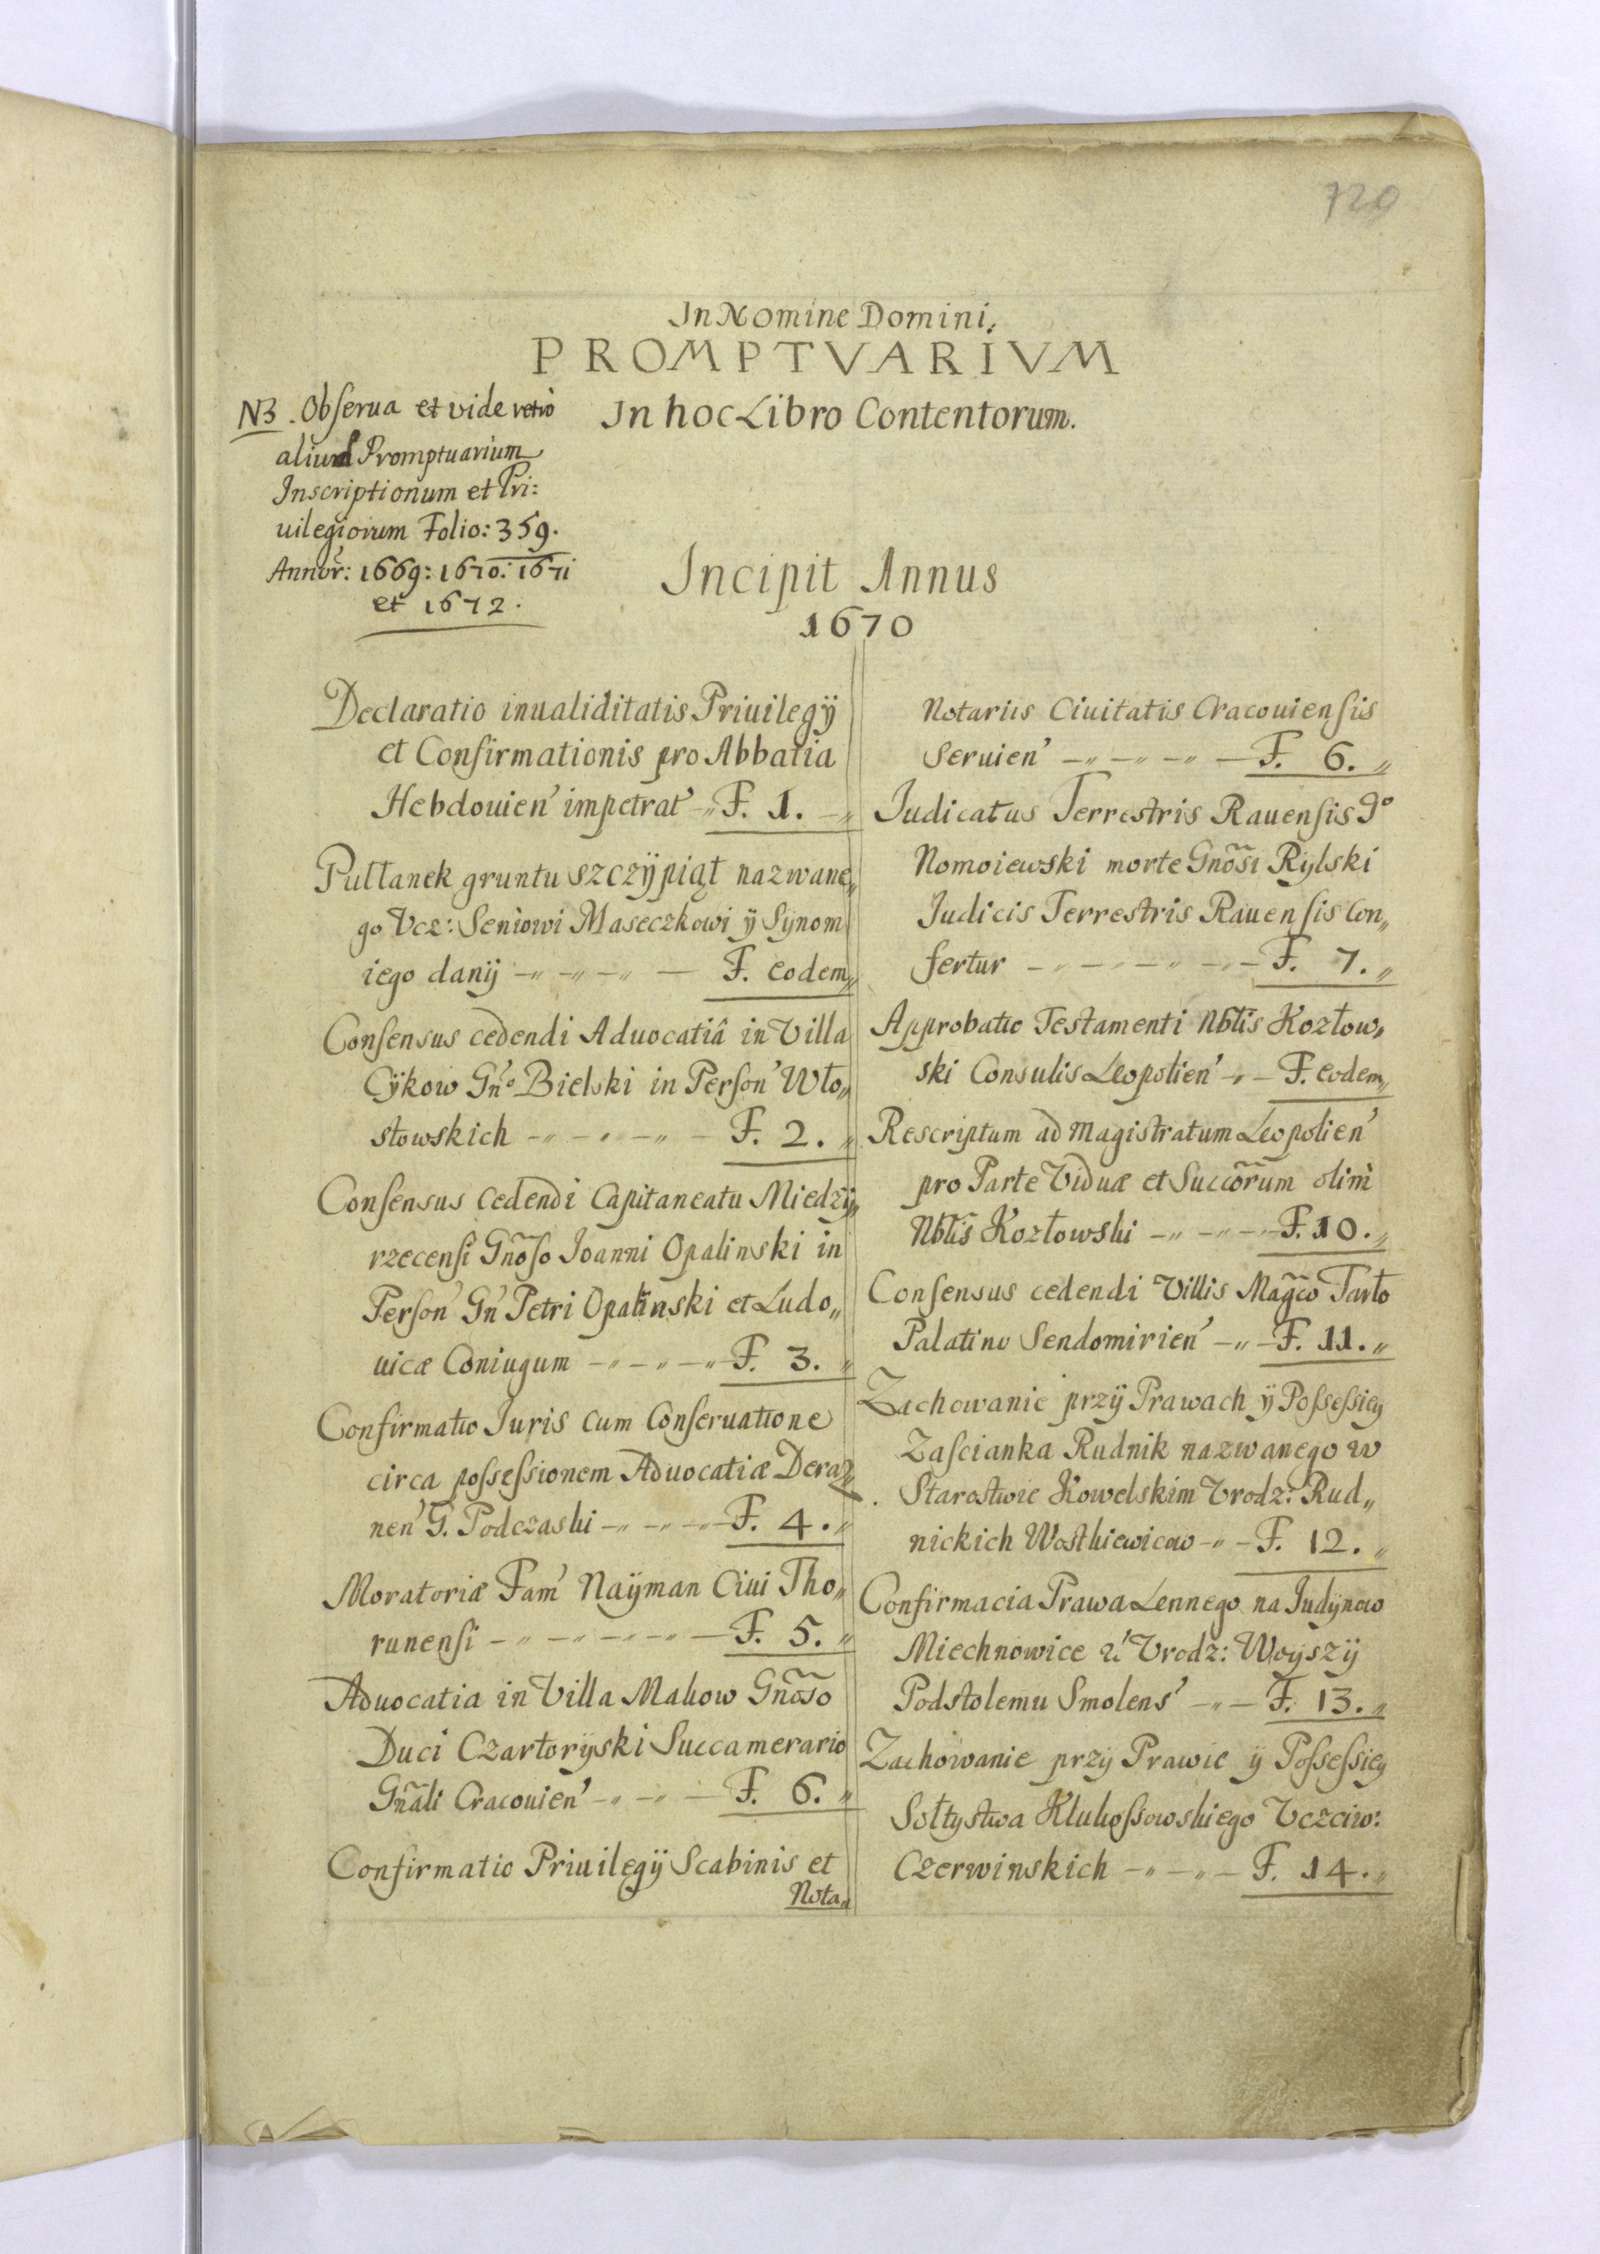 720
In Nomine Domini.
PROMPTVARIVM
In hoc Libro Contentorum.
NB. Obserua et vide retro
aliud Promptuarium
Inscriptionum et Pri:
uilegiorum Folio: 359.
Annor: 1669: 1670: 1671
et 1672.
Incipit Annus
1670
Declaratio inualiditatis Priuilegÿ
et Confirmationis pro Abbatia
Hebdouien' impetrat' F. 1.
Pułłanek gruntu szczÿpiąt nazwane„
go Vcz: Seniowi Maseczkowi ÿ Synom
iego danÿ F. eodem„
Consensus cedendi Aduocatiâ in Villa
Cÿkow Gn'o Bielski in Person' Wło„
stowskich F. 2.
Consensus cedendi Capitaneatu Miedzÿ„
rzecensi Gñoso Joanni Opalinski in
Person' Gn' Petri Opalinski et Ludo„
uicæ Coniugum F. 3.
Confirmatio Iuris cum Conseruatione
circa possessionem Aduocatiæ Deraz„
nen' G. Podczaski F. 4.
Moratoriæ Fam' Naÿman Ciui Tho„
runensi F. 5.
Aduocatia in Villa Makow Gñoso
Duci Czartorÿski Succamerario
Gñali Cracouien' F. 6.
Confirmatio Priuilegÿ Scabinis et
Nota„
Notariis Ciuitatis Cracouiensis
Seruien' F. 6.
Judicatus Terrestris Rauensis Go
Nomoiewski morte Gñosi Rÿlski
Judicis Terrestris Rauensis Con„
fertur F. 7.
Approbatio Testamenti Nbłis Kozłow„
ski Consulis Leopolien' F. eodem„
Rescriptum ad Magistratum Leopolien'
pro Parte Viduæ et Succõrum olim
Nblis Kozłowski F. 10.
Consensus cedendi Villis Magco Tarło
Palatino Sendomirien' F. 11.
Zachowanie przÿ Prawach ÿ Possessiey
Zascianka Rudnik nazwanego w
Starostwie Kowelskim Vrodz: Rud„
nickich Wostkiewicow F. 12.
Confirmacia Prawa Lennego na Judÿnow
Miechnowice Vrodz: Woyszÿ
Podstolemu Smolens' F. 13.
Zachowanie przÿ Prawie ÿ Possessieÿ
Sołtystwa Klukossowskiego Vczciw:
Czerwinskich F. 14.